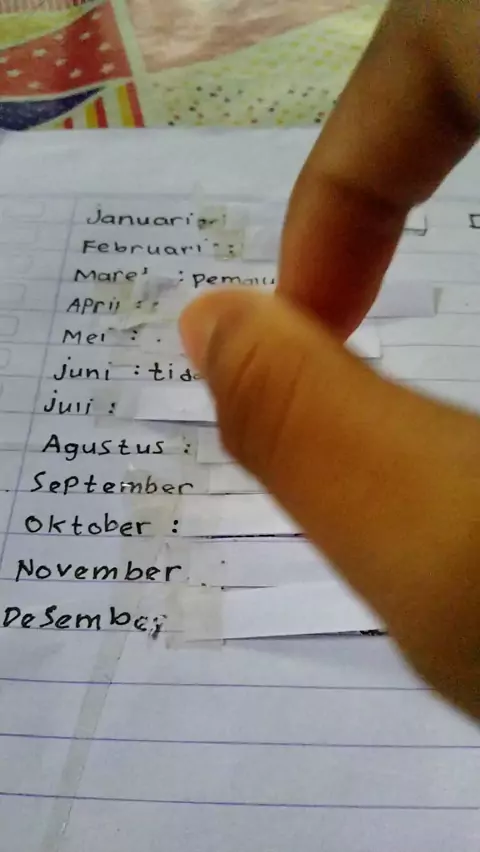 Januari
Februari :
Maret : pemalu
April :
Mei :
Juni :
Juli :
Agustus :
September
Oktober :
November :
Desember